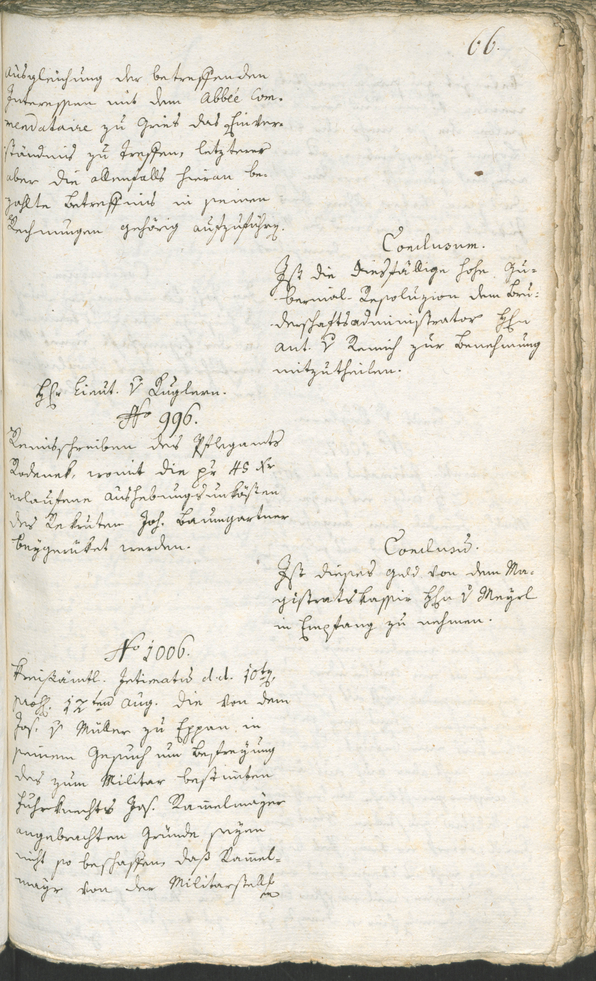 66.
Ausgleichung der betreffenden
Interessen mit dem Abbée Com-
mendataire zu Gries das Einver-
ständnis zu treffen, letzterer
aber die allenfalls hieran be-
zahlte Betreffnis in seinen
Rechnungen gehörig aufzuführen.
Conclusum.
Ist die diesfällige hohe Gu-
bernial-Resoluzion dem Bru-
derschaftsadministrator Hhn
Ant. v Remich zur Benehmung
mitzutheilen.
Hhr Lieut. v Kuglern.
No 996.
Remisschreiben des Pfleganits
Rodenek, womit die pr 45 Xr
erlaufene Aushebungsunkösten
des Rekruten Joh. Baumgartner
beygerüket werden.
Conclus.
Ist dieses Geld von dem Ma-
gistratskassir Hhn v Meyrl
in Empfang zu nehmen.
No 1006.
Kreisämtl. Intimatio d.d. 10ten
12ten Aug. die von dem
Jos. v Müller zu Eppan in
seinem Gesuch um Befreyung
des zum Militar bestimten
Fuhrknechts Jos. Ramelmayer
angebrachten Gründe seyen
nicht so beschaffen, daß Ramel-
mayr von der Militarstell